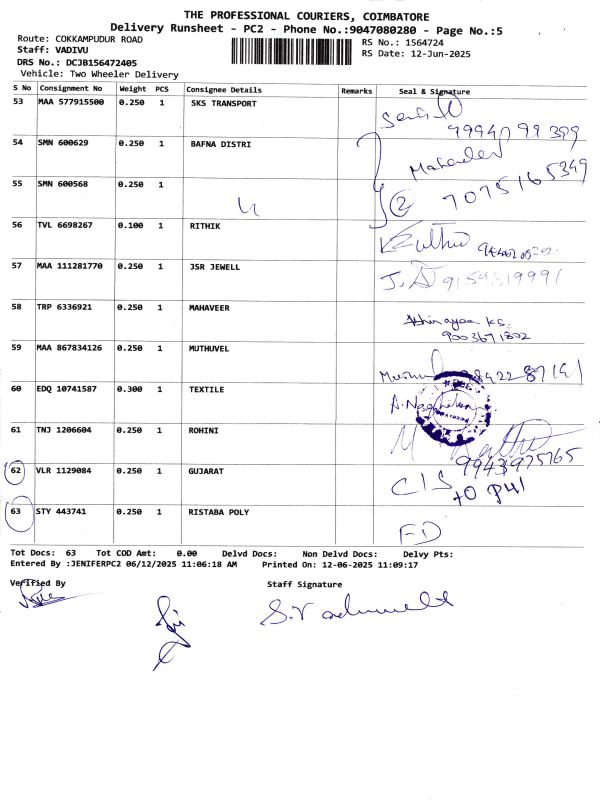 THE PROFESSIONAL COURIERS, COIMBATORE
Delivery Runsheet - PC2 - Phone No.:9047080280 - Page No.:5
Route: COKKAMPUDUR ROAD
RS No.: 1564724
Staff: VADIVU
RS Date: 12-Jun-2025
DRS No.: DCJB156472405
Vehicle: Two Wheeler Delivery
S No Consignment No Weight PCS Consignee Details Remarks Seal & Signature
53 MAA 577915500 0.250 1 SKS TRANSPORT
54 SMN 600629 0.250 1 BAFNA DISTRI
55 SMN 600568 0.250 1
2 7075165349
56 TVL 6698267 0.100 1 RITHIK
57 MAA 111281770 0.250 1 JSR JEWELL
58 TRP 6336921 0.250 1 MAHAVEER
9003671802
59 MAA 867834126 0.250 1 MUTHUVEL
60 EDQ 10741587 0.300 1 TEXTILE
61 TNJ 1206604 0.250 1 ROHINI
9943975765
62 VLR 1129084 0.250 1 GUJARAT CIS to P41
63 STY 443741 0.250 1 RISTABA POLY FD
Tot Docs: 63 Tot COD Amt: 0.00 Delvd Docs: Non Delvd Docs: Delvy Pts:
Entered By :JENIFERPC2 06/12/2025 11:06:18 AM Printed On: 12-06-2025 11:09:17
Verified By Staff Signature